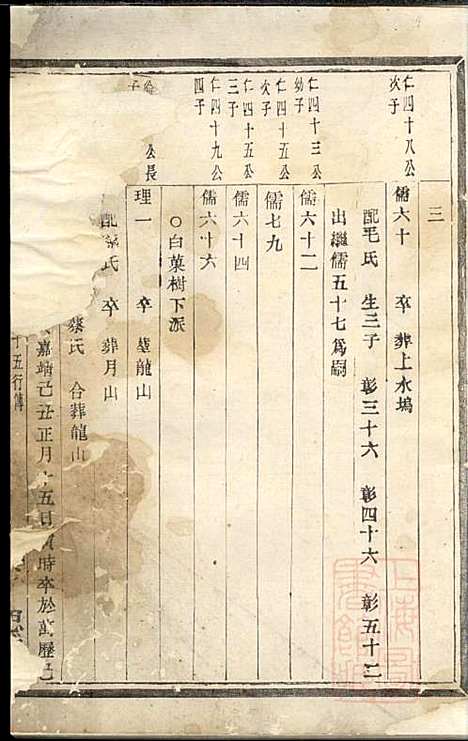 三
仁四十八公
次子
儒六十 卒 葬上水塢
配毛氏 生三子 彰三十六 彰四十六 彰五十二
出繼儒五十七為嗣
仁四十三公
幼子
儒六十二
仁四十五公
次子
儒七九
仁四十五公
三子
儒六十四
仁四十九公
四子
儒六十六
○白菓樹下派
公長
子
理一 卒 墓龍山
配 氏 卒 葬月山
蔡氏 合葬龍山
嘉靖己丑正月十五日 時卒於萬歷己
十五行傳